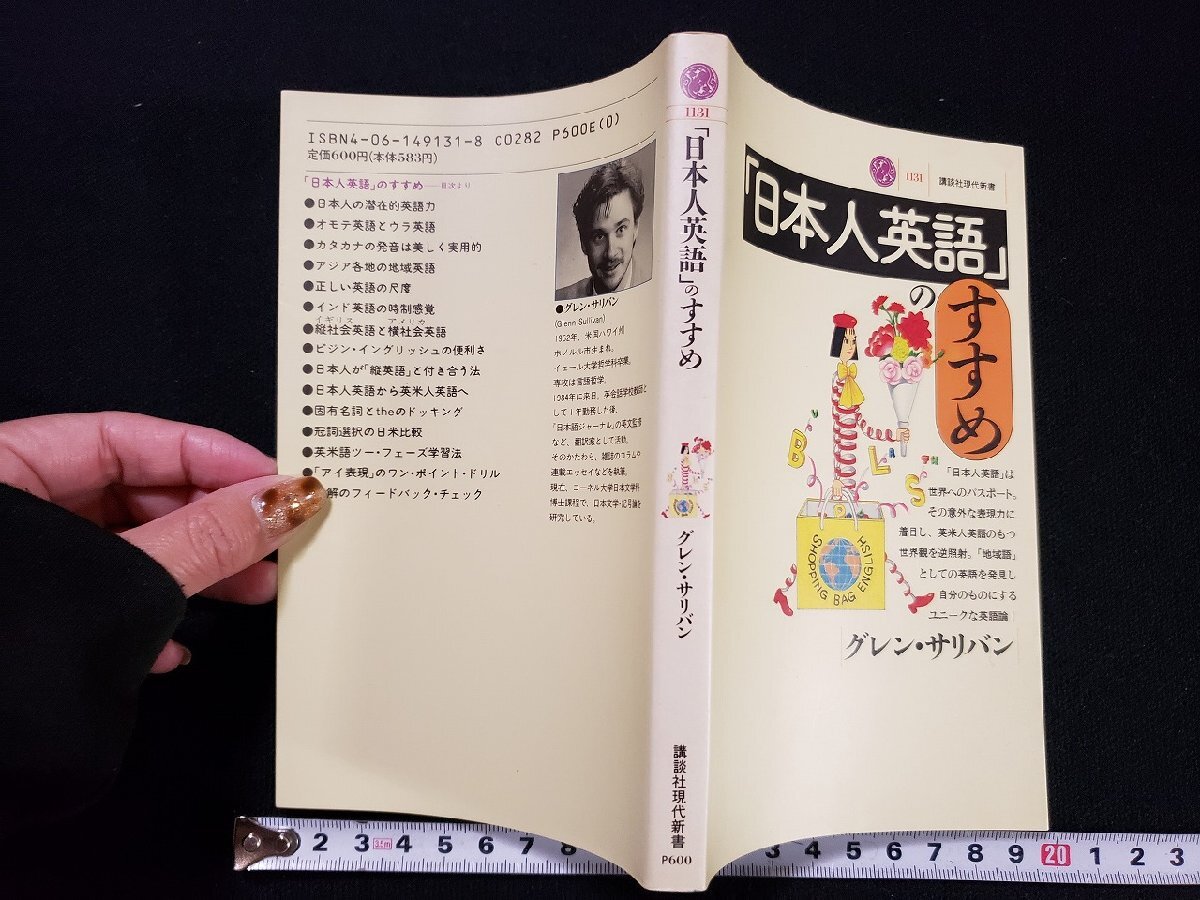 ISBN4-06-149131-8 C0282 P600E(0)
定価600円(本体583円)
「日本人英語」のすすめ——目次より
●日本人の潜在的英語力
●オモテ英語とウラ英語
●カタカナの発音は美しく実用的
●アジア各地の地域英語
●正しい英語の尺度
●インド英語の時制感覚
イギリス アメリカ
●縦社会英語と横社会英語
●ピジン・イングリッシュの便利さ
●日本人が「縦英語」と付き合う法
●日本人英語から英米人英語へ
●固有名詞とtheのドッキング
●冠詞選択の日米比較
●英米語ツー・フェーズ学習法
●「アイ表現」のワン・ポイント・ドリル
解のフィードバック・チェック
●グレン・サリバン
(Glenn Sullivan)
1952年、米国ハワイ州
ホノルル市生まれ。
イェール大学哲学科卒業。
専攻は言語哲学。
1984年に来日。英会話学校教師と
して1年勤務した後、
「日本語ジャーナル」の英文監督
など、翻訳家として活動。
そのかたわら、雑誌のコラムや
連載エッセイなどを執筆。
現在、コーネル大学日本文学科
博士課程で、日本文学・記号論を
研究している。
1131
「日本人英語」のすすめ
グレン・サリバン
講談社現代新書
P600
1131
講談社現代新書
「日本人英語」
の
すすめ
BLS
SHOPPING BAG ENGLISH
「日本人英語」は
世界へのパスポート。
その意外な表現力に
着目し、英米人英語のもつ
世界観を逆照射。「地域語」
としての英語を発見し
自分のものにする
ユニークな英語論
グレン・サリバン
2 3 3.5m 4 5 6 7 8
3 4 5 6 7 8 9 20 1 2 3